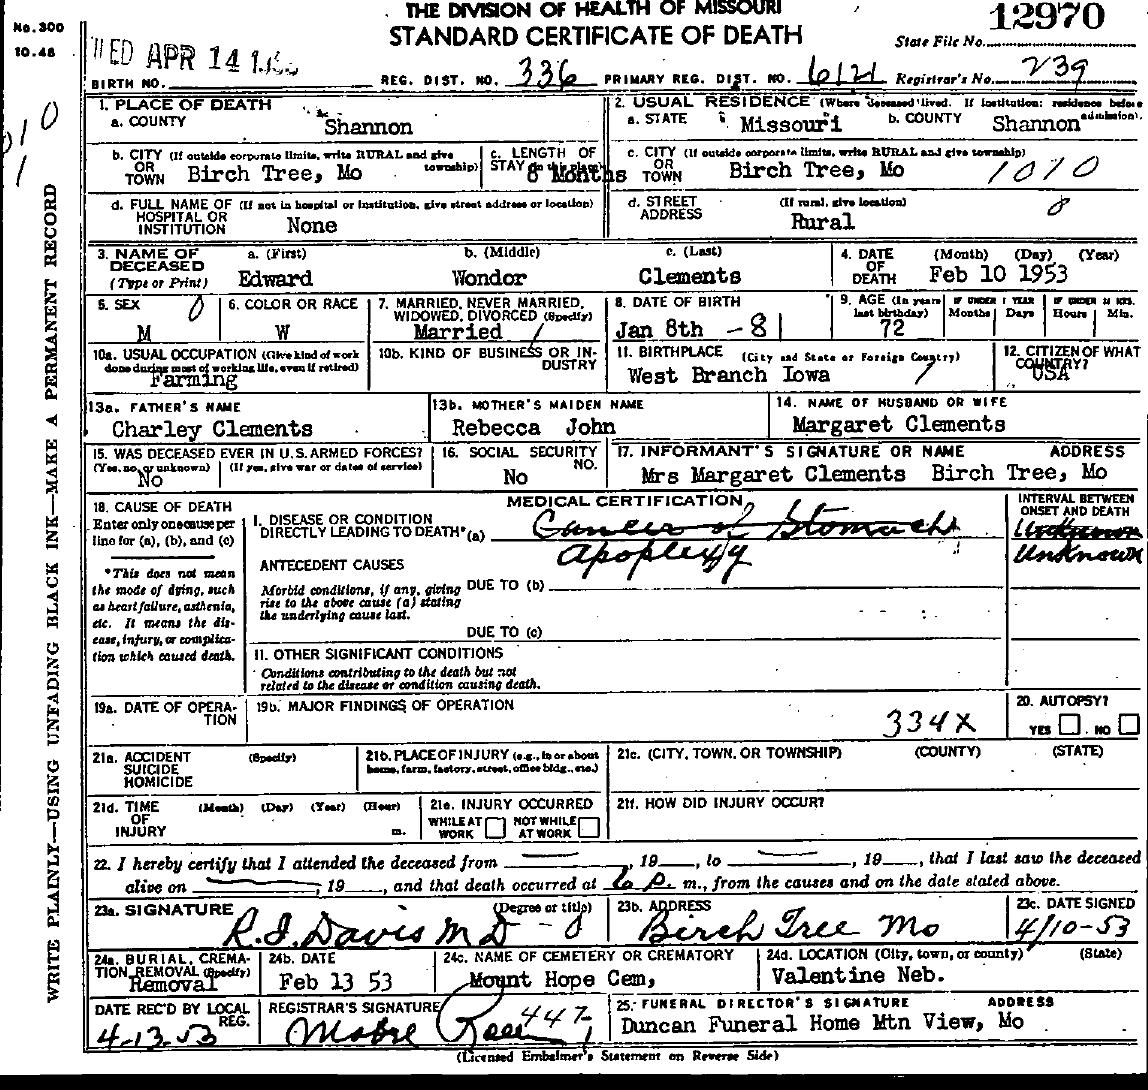 No. 300
10-48
THE DIVISION OF HEALTH OF MISSOURI
STANDARD CERTIFICATE OF DEATH
12970
State File No.
APR 14
BIRTH NO.
REG. DIST. NO. 336
PRIMARY REG. DIST. NO. 6121
Registrar's No. 239
WRITE PLAINLY—USING UNFADING BLACK INK—MAKE A PERMANENT RECORD
1. PLACE OF DEATH
a. COUNTY Shannon
2. USUAL RESIDENCE (Where deceased lived. If institution: residence before admission).
a. STATE Missouri b. COUNTY Shannon
b. CITY (If outside corporate limits, write RURAL and give township)
OR TOWN Birch Tree, Mo
c. LENGTH OF STAY 8 Months
c. CITY (If outside corporate limits, write RURAL and give township)
OR TOWN Birch Tree, Mo 1010
d. FULL NAME OF (If not in hospital or institution, give street address or location)
HOSPITAL OR INSTITUTION None
d. STREET ADDRESS (If rural, give location) 8
Rural
3. NAME OF DECEASED (Type or Print)
a. (First) Edward
b. (Middle) Wondor
c. (Last) Clements
4. DATE OF DEATH (Month) (Day) (Year)
Feb 10 1953
5. SEX 0
M
6. COLOR OR RACE
W
7. MARRIED, NEVER MARRIED, WIDOWED, DIVORCED (Specify)
Married 1
8. DATE OF BIRTH
Jan 8th -81
9. AGE (In years last birthday)
72
IF UNDER 1 YEAR Months Days
IF UNDER 24 HRS. Hours Min.
10a. USUAL OCCUPATION (Give kind of work done during most of working life, even if retired)
Farming
10b. KIND OF BUSINESS OR INDUSTRY
11. BIRTHPLACE (City and State or Foreign Country)
West Branch Iowa
12. CITIZEN OF WHAT COUNTRY?
USA
13a. FATHER'S NAME
Charley Clements
13b. MOTHER'S MAIDEN NAME
Rebecca John
14. NAME OF HUSBAND OR WIFE
Margaret Clements
15. WAS DECEASED EVER IN U.S. ARMED FORCES?
(Yes, no, or unknown) (If yes, give war or dates of service)
No
16. SOCIAL SECURITY NO.
No
17. INFORMANT'S SIGNATURE OR NAME ADDRESS
Mrs Margaret Clements Birch Tree, Mo
18. CAUSE OF DEATH
Enter only one cause per line for (a), (b), and (c)
*This does not mean the mode of dying, such as heart failure, asthenia, etc. It means the disease, injury, or complication which caused death.
MEDICAL CERTIFICATION
I. DISEASE OR CONDITION DIRECTLY LEADING TO DEATH* (a) Cancer of Stomach
Apoplexy
INTERVAL BETWEEN ONSET AND DEATH
Unknown
Unknown
ANTECEDENT CAUSES
Morbid conditions, if any, giving rise to the above cause (a) stating the underlying cause last.
DUE TO (b)
DUE TO (c)
II. OTHER SIGNIFICANT CONDITIONS
Conditions contributing to the death but not related to the disease or condition causing death.
19a. DATE OF OPERATION
19b. MAJOR FINDINGS OF OPERATION
334X
20. AUTOPSY?
YES NO
21a. ACCIDENT SUICIDE HOMICIDE (Specify)
21b. PLACE OF INJURY (e.g., in or about home, farm, factory, street, office bldg., etc.)
21c. (CITY, TOWN, OR TOWNSHIP) (COUNTY) (STATE)
21d. TIME OF INJURY (Month) (Day) (Year) (Hour) m.
21e. INJURY OCCURRED
WHILE AT WORK NOT WHILE AT WORK
21f. HOW DID INJURY OCCUR?
22. I hereby certify that I attended the deceased from , 19 , to , 19 , that I last saw the deceased
alive on , 19 , and that death occurred at 6 p. m., from the causes and on the date stated above.
23a. SIGNATURE (Degree or title)
R.I. Davis MD
23b. ADDRESS
Birch Tree Mo
23c. DATE SIGNED
4/10-53
24a. BURIAL, CREMATION, REMOVAL (Specify)
Removal
24b. DATE
Feb 13 53
24c. NAME OF CEMETERY OR CREMATORY
Mount Hope Cem,
24d. LOCATION (City, town, or county) (State)
Valentine Neb.
DATE REC'D BY LOCAL REG.
4-13-53
REGISTRAR'S SIGNATURE 447
25. FUNERAL DIRECTOR'S SIGNATURE ADDRESS
Duncan Funeral Home Mtn View, Mo
(Licensed Embalmer's Statement on Reverse Side)